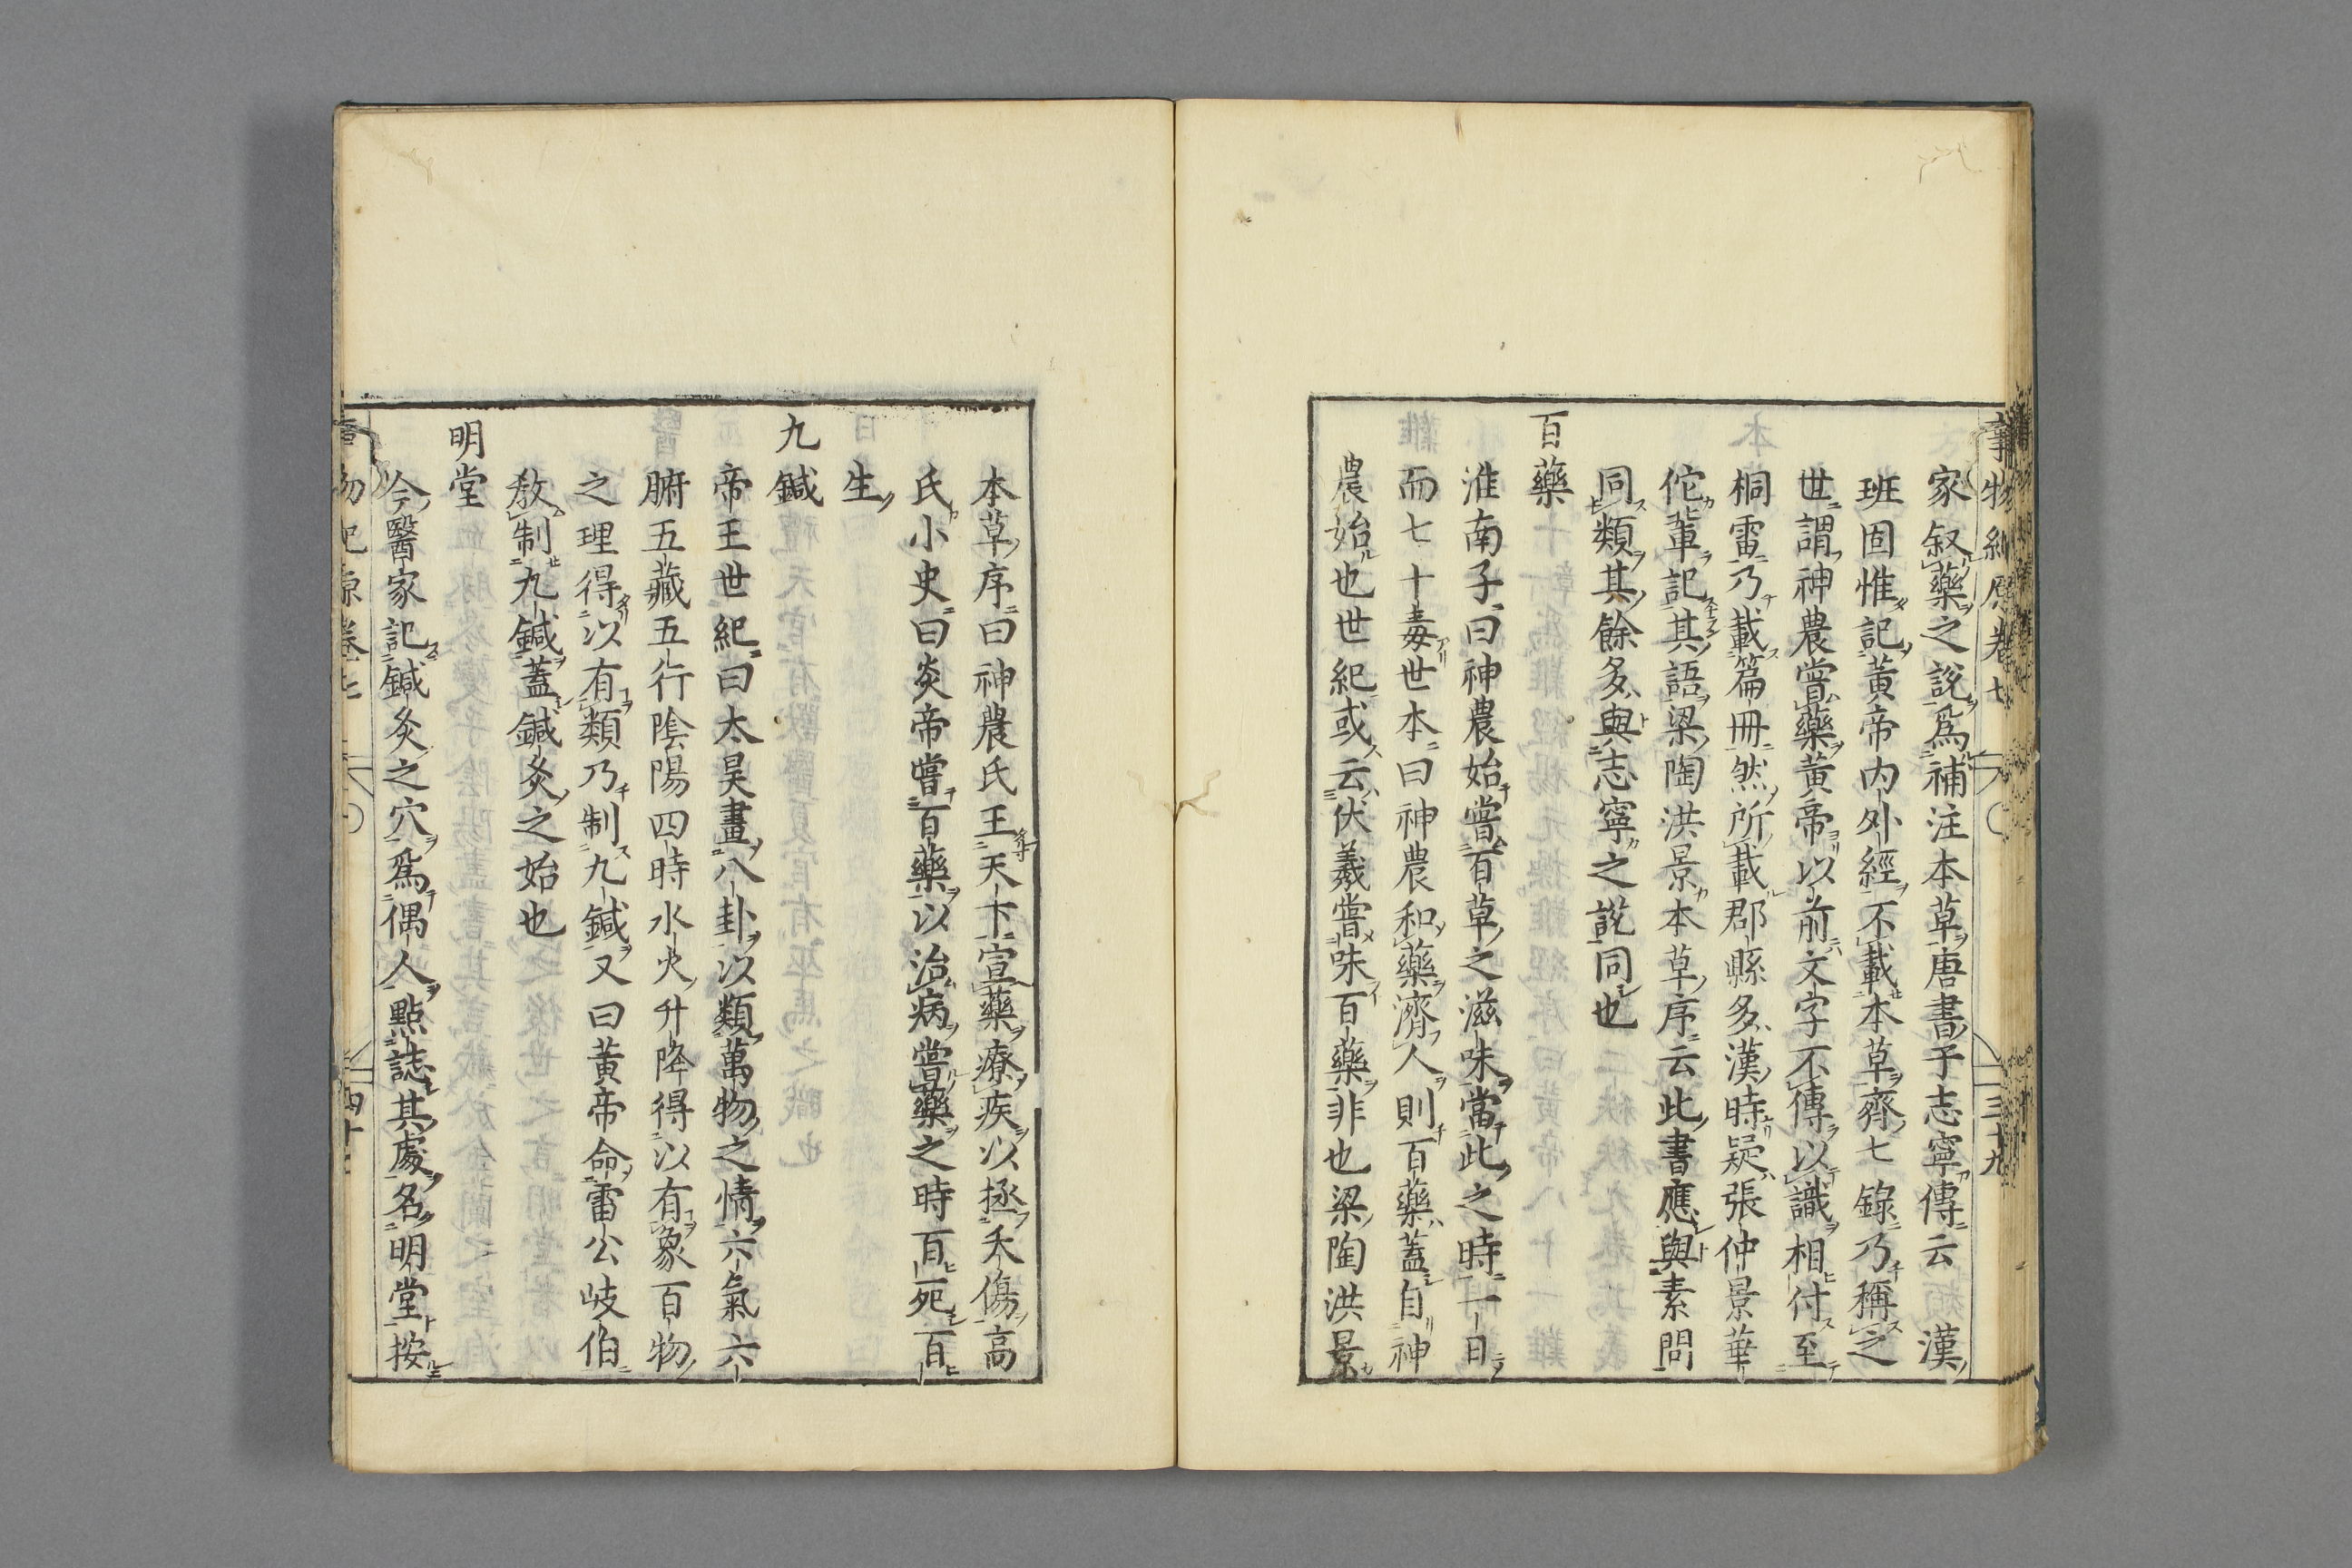 事物紀原卷七 三十九
家叙藥之説爲補注本草唐書于志寧傳云 漢
班固惟記黃帝内外經不載本草齊七錄乃稱之
世謂神農嘗藥黃帝以前文字不傳以識相付至
桐雷乃載篇冊然所載郡縣多漢時疑張仲景華
佗輩記其語梁陶洪景本草序云此書應與素問
同類其餘多與志寧之説同也
百藥
淮南子曰神農始嘗百草之滋味當此之時一日
而七十毒世本曰神農和藥濟人則百藥蓋自神
農始也世紀或云伏羲嘗味百藥非也梁陶洪景
本草序曰神農氏王天下宣藥療疾以拯夭傷高
氏小史曰炎帝嘗百藥以治病嘗藥之時百死百
生
九鍼
帝王世紀曰太昊畫八卦以類萬物之情六氣六
腑五藏五行陰陽四時水火升降得以有象百物
之理得以有類乃制九鍼又曰黃帝命雷公岐伯
敎制九鍼蓋鍼灸之始也
明堂
今醫家記鍼灸之穴爲偶人點誌其處名明堂按
物紀原卷七 四十